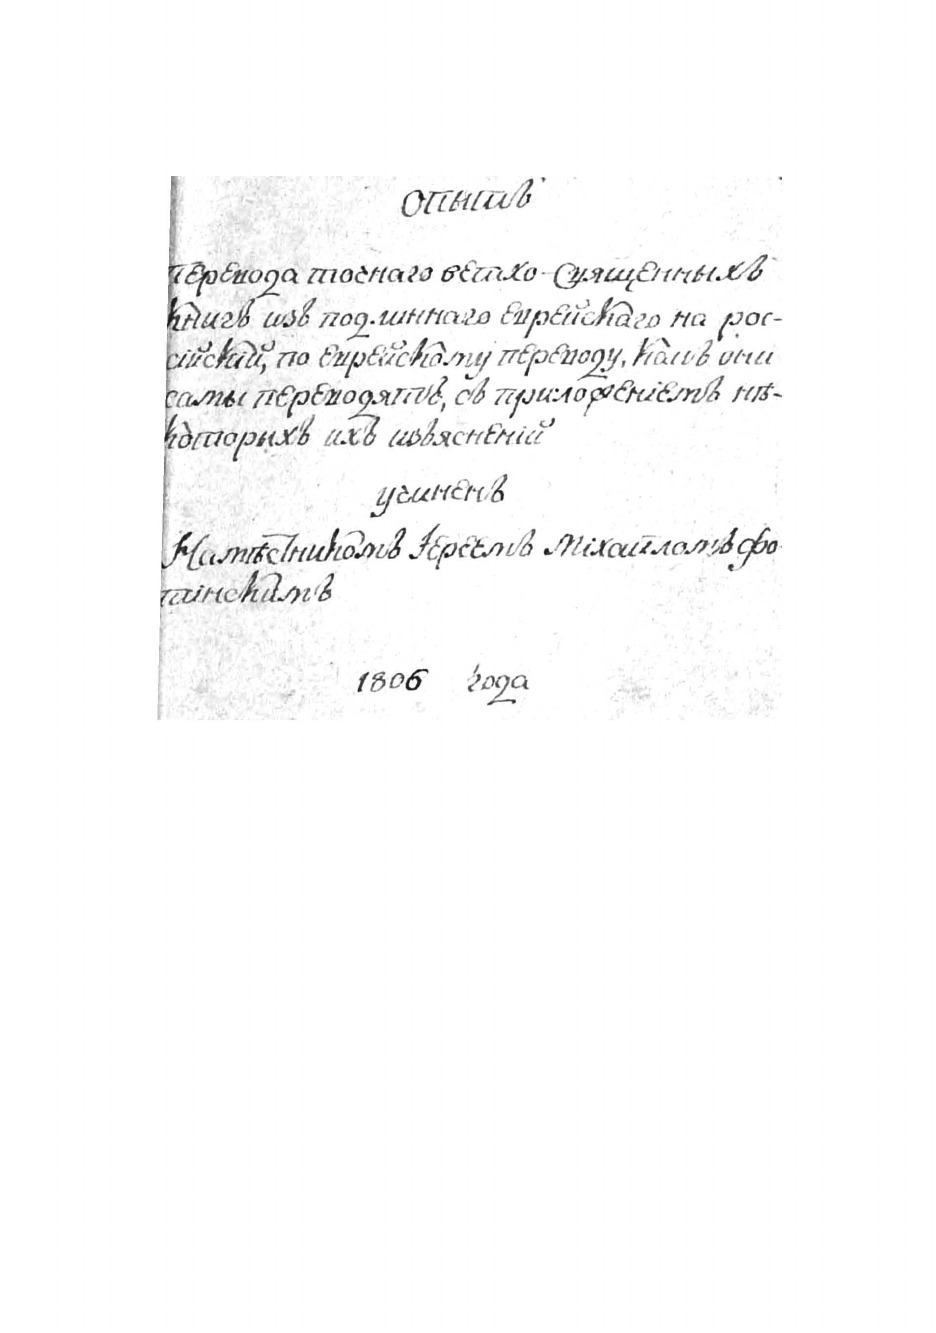 опытъ
перевода точнаго ветхо-священныхъ
книгъ изъ подлиннаго еврейскаго на рос-
сійскій, по еврейскому переводу, какъ они
самы переводятъ, съ приложеніемъ нѣ-
которихъ ихъ изъясненій
учиненъ
Намѣстникомъ Іереемъ Міхаиломъ фо-
тинскимъ
1806 года